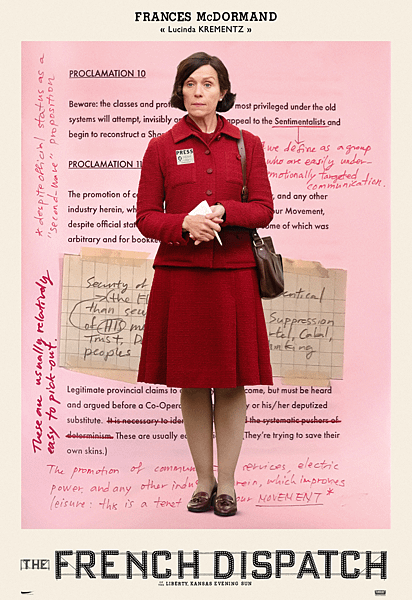 FRANCES McDORMAND
« Lucinda KREMENTZ »
* despite official status as a
"second-wave" proposition
PROCLAMATION 10
Beware: the classes and prot most privileged under the old
systems will attempt, invisibly an appeal to the Sentimentalists and
begin to reconstruct a Sha
we define as a group
who are easily under-
emotionally targeted
communication.
PRESS
PROCLAMATION 11
The promotion of co y, and any other
industry herein, wh our Movement,
despite official stat ome of which was
arbitrary and for bookke
Security of critical
the
than secu Suppression
of (HIS) m rtel, Cabal,
Trust, D nking
peoples
These are usually relatively
easy to pick-out.
Legitimate provincial claims to come, but must be heard
and argued before a Co-Oper y or his/her deputized
substitute. It is necessary to iden d the systematic pushers of
determinism. These are usually ea (They're trying to save their
own skins.)
The promotion of commun services, electric
power, and any other indus rein, which improves
leisure: this is a tenet our MOVEMENT *
THE FRENCH DISPATCH
OF THE LIBERTY, KANSAS EVENING SUN